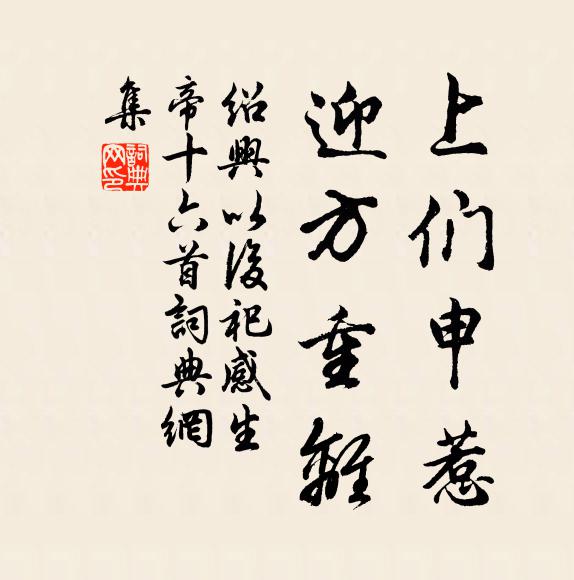 上们申惹
迎方重離
绍興以後祀感生
帝十六首詞典網
集
詞典网印